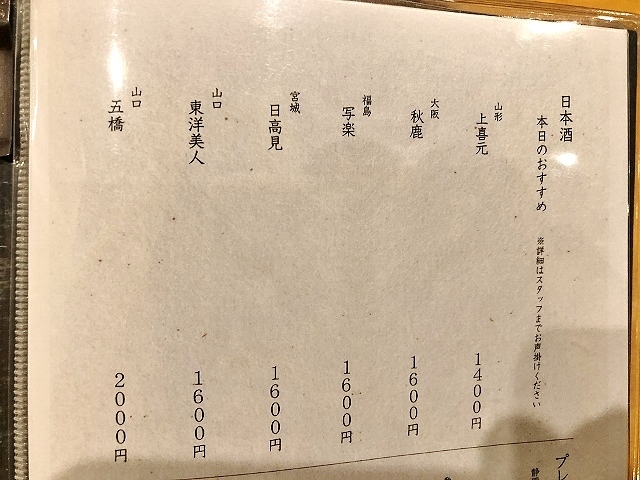 日本酒
本日のおすすめ ※詳細はスタッフまでお声掛けください
山形
上喜元 1400円
大阪
秋鹿 1600円
福島
写楽 1600円
宮城
日高見 1600円
山口
東洋美人 1600円
山口
五橋 2000円
プレ